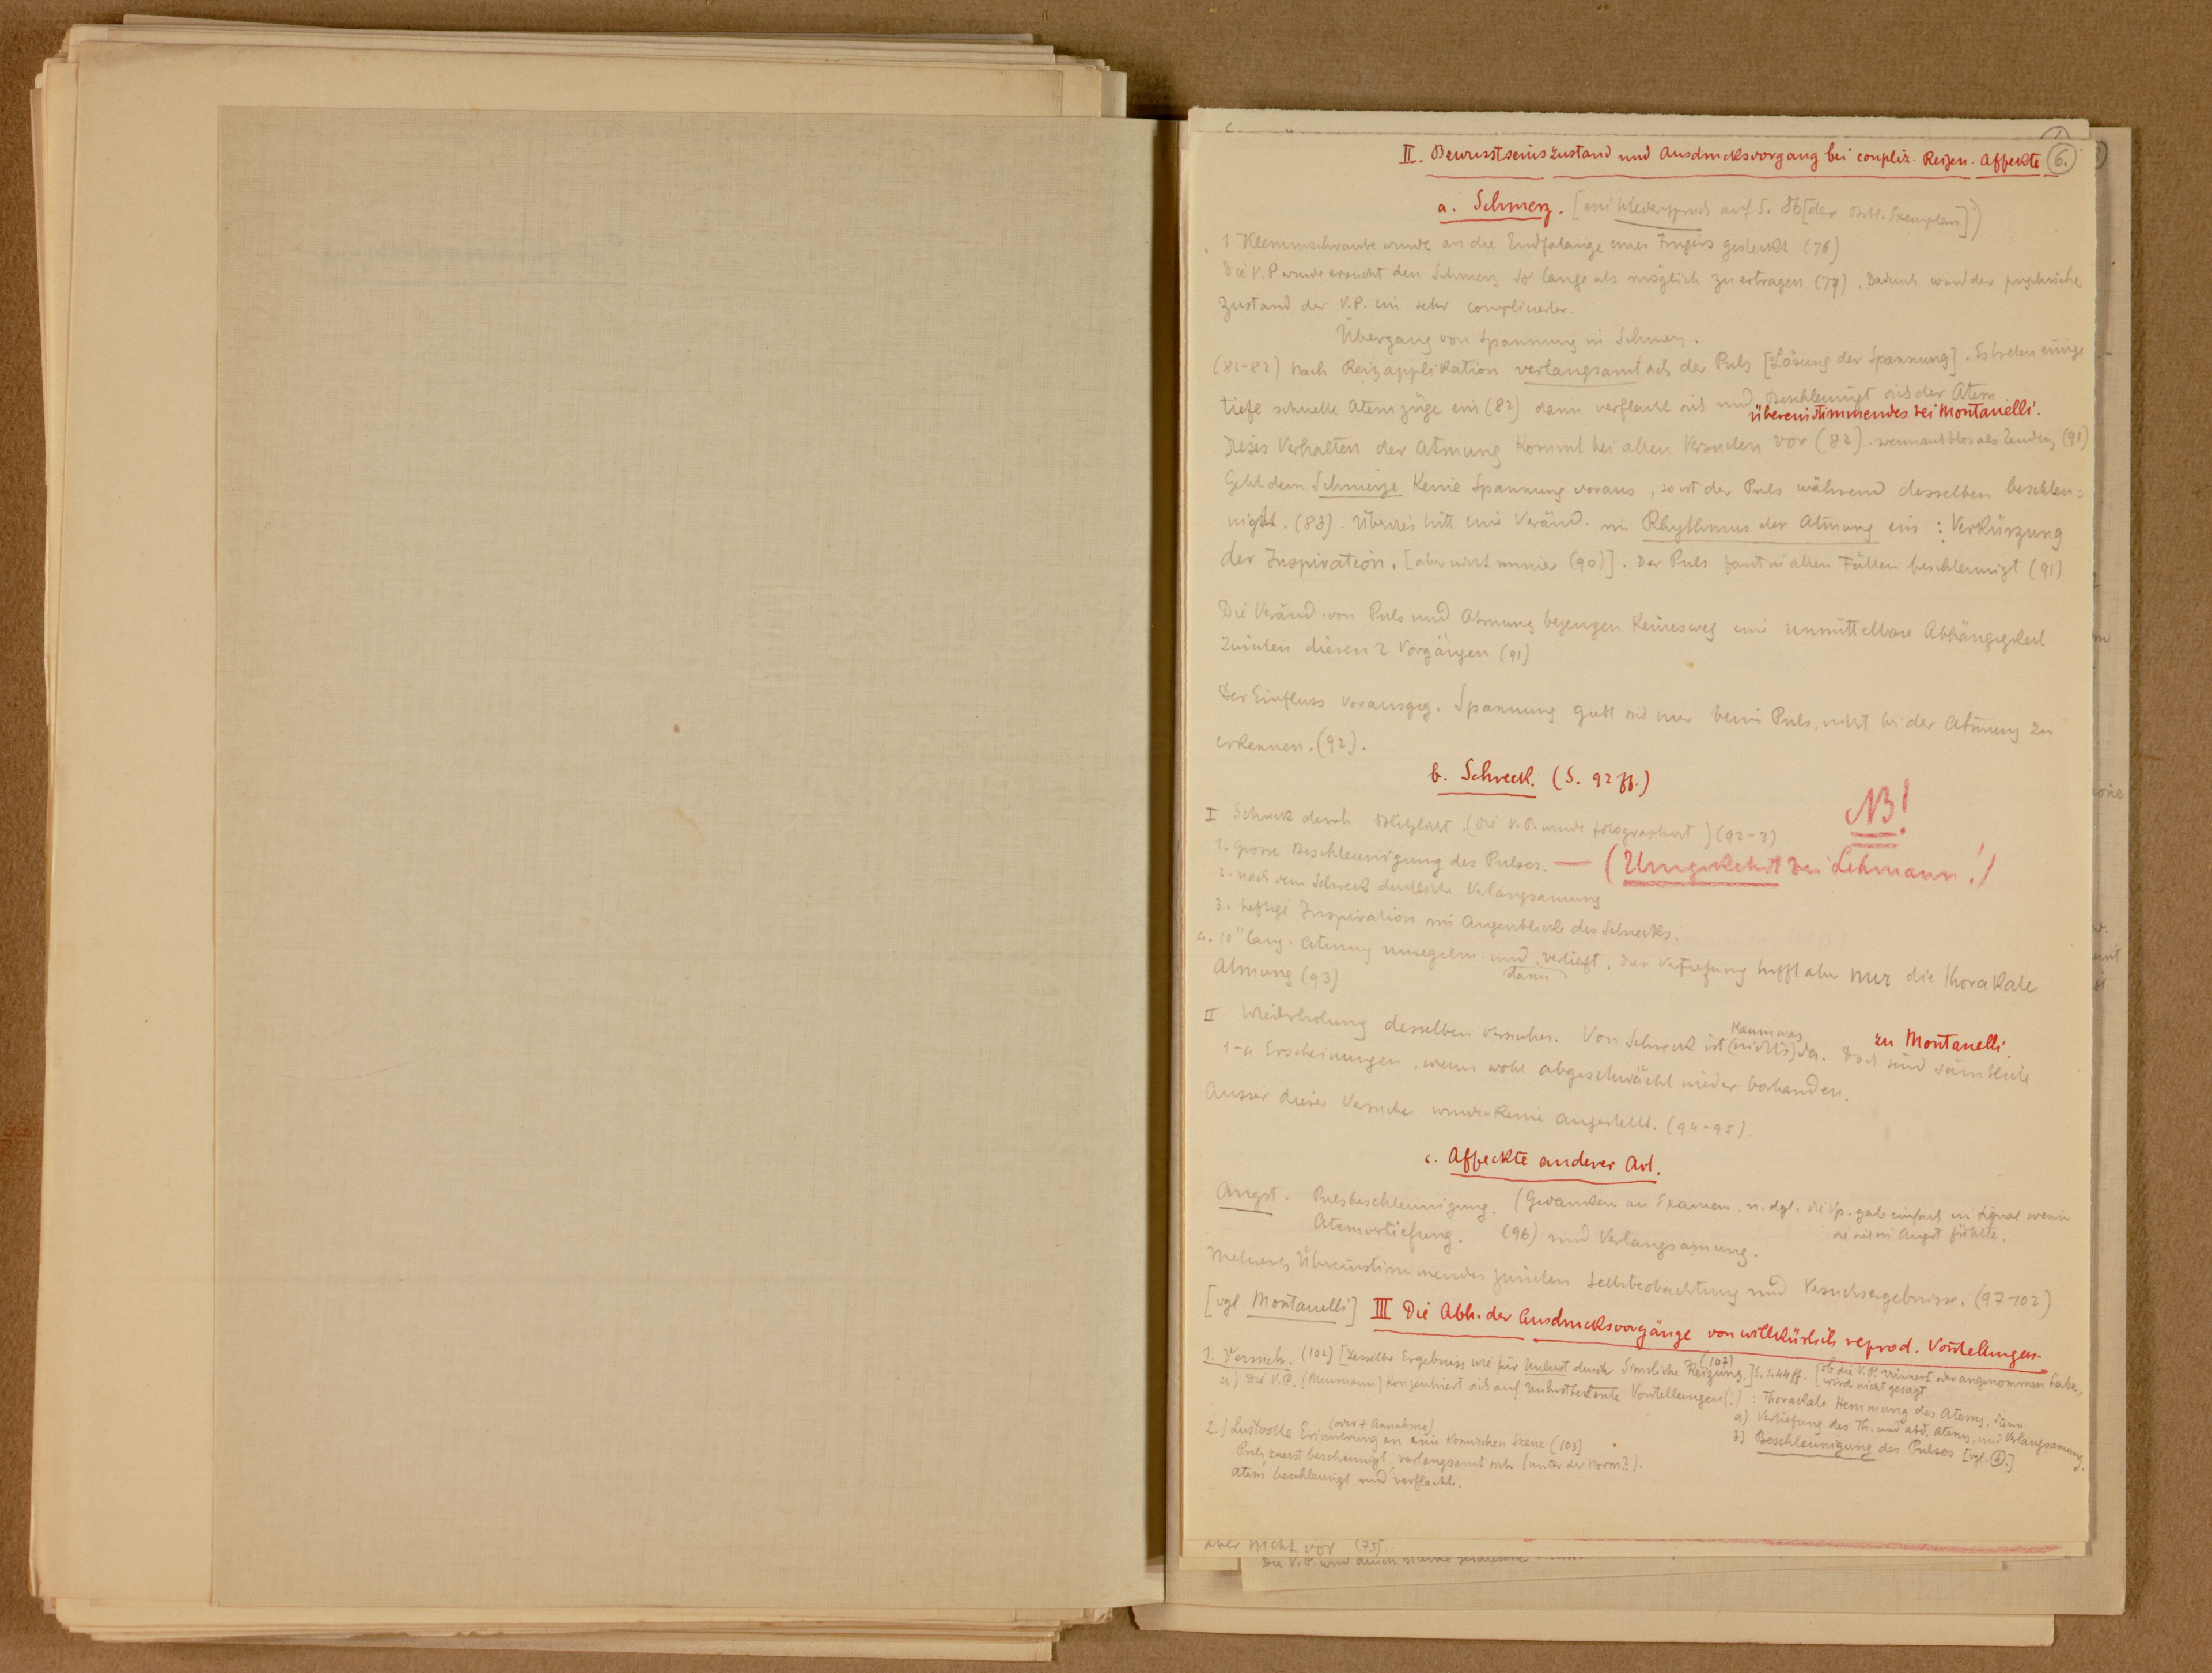 II. Bewusstseinszustand und Ausdrucksvorgang bei compliz. Reizen. Affekte 6.
a. Schmerz. [ein Wiederspruch auf S. 86 [des Bibl. Exemplars]]
1 Klemmschraube wurde an die Endfalange eines Fingers gesteckt (76)
Die V.P wurde ersucht den Schmerz so lange als möglich zu ertragen (77). Dadurch wurde der psychische
Zustand der V.P. ein sehr complicierter.
Übergang von Spannung in Schmerz.
(81-82) Nach Reizapplikation verlangsamt sich der Puls [Lösung der Spannung]. Es treten einige
tiefe schnelle Atemzüge ein (82) dann verflacht sich und beschleunigt sich der Atem
übereinstimmendes bei Montanelli.
Dieses Verhalten der Atmung kommt bei allen Versuchen vor (82). wenn auch blos als Tendenz (91)
Geht dem Schmerze keine Spannung voraus, so ist der Puls während desselben beschleu=
nigt. (83). Überdies tritt eine Veränd. im Rhythmus der Atmung ein: Verkürzung
der Inspiration. [aber nicht immer (90)]. Der Puls fast in allen Fällen beschleunigt (91)
Die Veränd. von Puls und Atmung bezeugen keineswegs eine unmittelbare Abhängigkeit
zwischen diesen 2 Vorgängen (91)
Der Einfluss vorausgeg. Spannung giebt sich nur beim Puls, nicht bei der Atmung zu
erkennen. (92).
b. Schreck. (S. 92 ff.)
NB!
I Schreck durch Blitzlicht. (Die V.P. wurde fotographiert) (92-3)
1. Grosse Beschleunigung des Pulses. — (Umgekehrt bei Lehmann!)
2. nach dem Schreck deutliche Verlangsamung
3. heftige Inspiration im Augenblicke des Schrecks.
4. 10" lang. Atmung unregelm. und dann vertieft. Die Vertiefung trifft aber nur die thorakale
Atmung (93)
zu Montanelli.
II Wiederholung desselben Versuches. Von Schreck ist kaum was (nichts) da. Doch sind sämtliche
1-4 Erscheinungen, wenn wohl abgeschwächt wieder vorhanden.
Ausser dieser Versuche wurden keine angestellt. (94-95).
c. Affeckte anderer Art.
Angst. Pulsbeschleunigung. (Gedanken an Examen u. dgl. die Vp. gab einfach ein Signal wenn
sie sich in Angst fühlte.
Atemvertiefung. (96) und Verlangsamung.
Mehreres Übereinstimmendes zwischen Selbstbeobachtung und Versuchsergebnisse. (97-102)
[vgl Montanelli] III Die Abh. der Ausdrucksvorgänge von willkürlich reprod. Vorstellungen.
1. Versuch. (102) [Dasselbe Ergebniss wie für Unlust durch Sinnliche Reizung. (107)] S. S. 44 ff. [ob die V.P. erinnert oder angenommen habe,
wird nicht gesagt.
a) Die V.P. (Meumann) konzentriert sich auf unlustbetonte Vorstellungen (!) : Thorakale Hemmung des Atems, dann
a) Vertiefung des Th. und abd. Atems, und Verlangsamung.
b) Beschleunigung des Pulses [vgl. 4.]
2.) Lustvolle Erinnerung (oder + Annahme) an eine komischen Szene (103)
Puls zuerst beschleunigt, verlangsamt sich (unter der Norm?).
Atem beschleunigt und verflacht.
aber nicht vor (75).